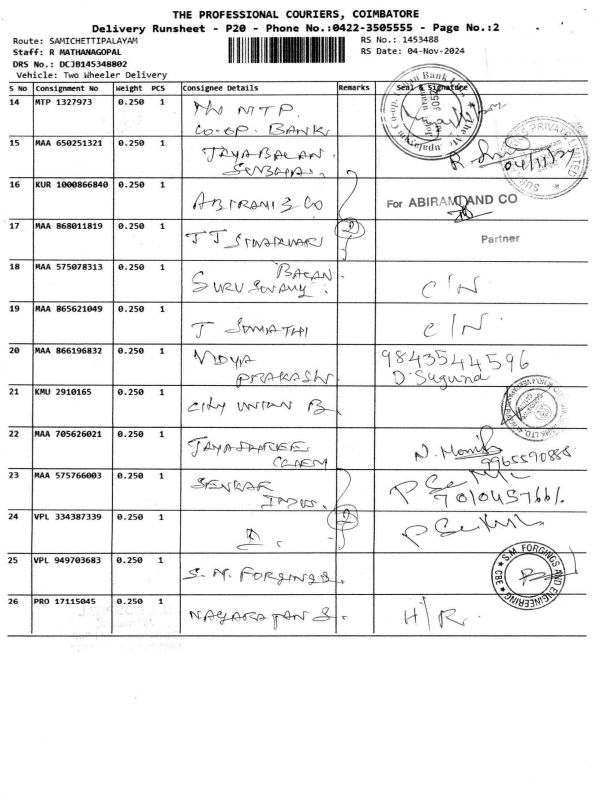 THE PROFESSIONAL COURIERS, COIMBATORE
Delivery Runsheet - P20 - Phone No.:0422-3505555 - Page No.:2
Route: SAMICHETTIPALAYAM RS No.: 1453488
Staff: R MATHANAGOPAL RS Date: 04-Nov-2024
DRS No.: DCJB145348802
Vehicle: Two Wheeler Delivery
S No Consignment No Weight PCS Consignee Details Remarks Seal & Signature
14 MTP 1327973 0.250 1 MTP
CO-OP. BANK
15 MAA 650251321 0.250 1 JAYABALAN
04/11/24
16 KUR 1000866840 0.250 1 ABIRAMI & CO For ABIRAMI AND CO
17 MAA 868011819 0.250 1 TJ Partner
18 MAA 575078313 0.250 1 BALAN
C/N
19 MAA 865621049 0.250 1 T SUMATHI C/N
20 MAA 866196832 0.250 1 VIDYA 9843544596
PRAKASH D. Suguna
21 KMU 2910165 0.250 1 CITY UNION B
22 MAA 705626021 0.250 1 JAYAJANREE
CHEM
23 MAA 575766003 0.250 1
INDUS.
24 VPL 334387339 0.250 1
25 VPL 949703683 0.250 1 S. M. FORGINGS S.M. FORGINGS AND ENGINEERING CBE
26 PRO 17115045 0.250 1 NAGARAJAN S. H/R.